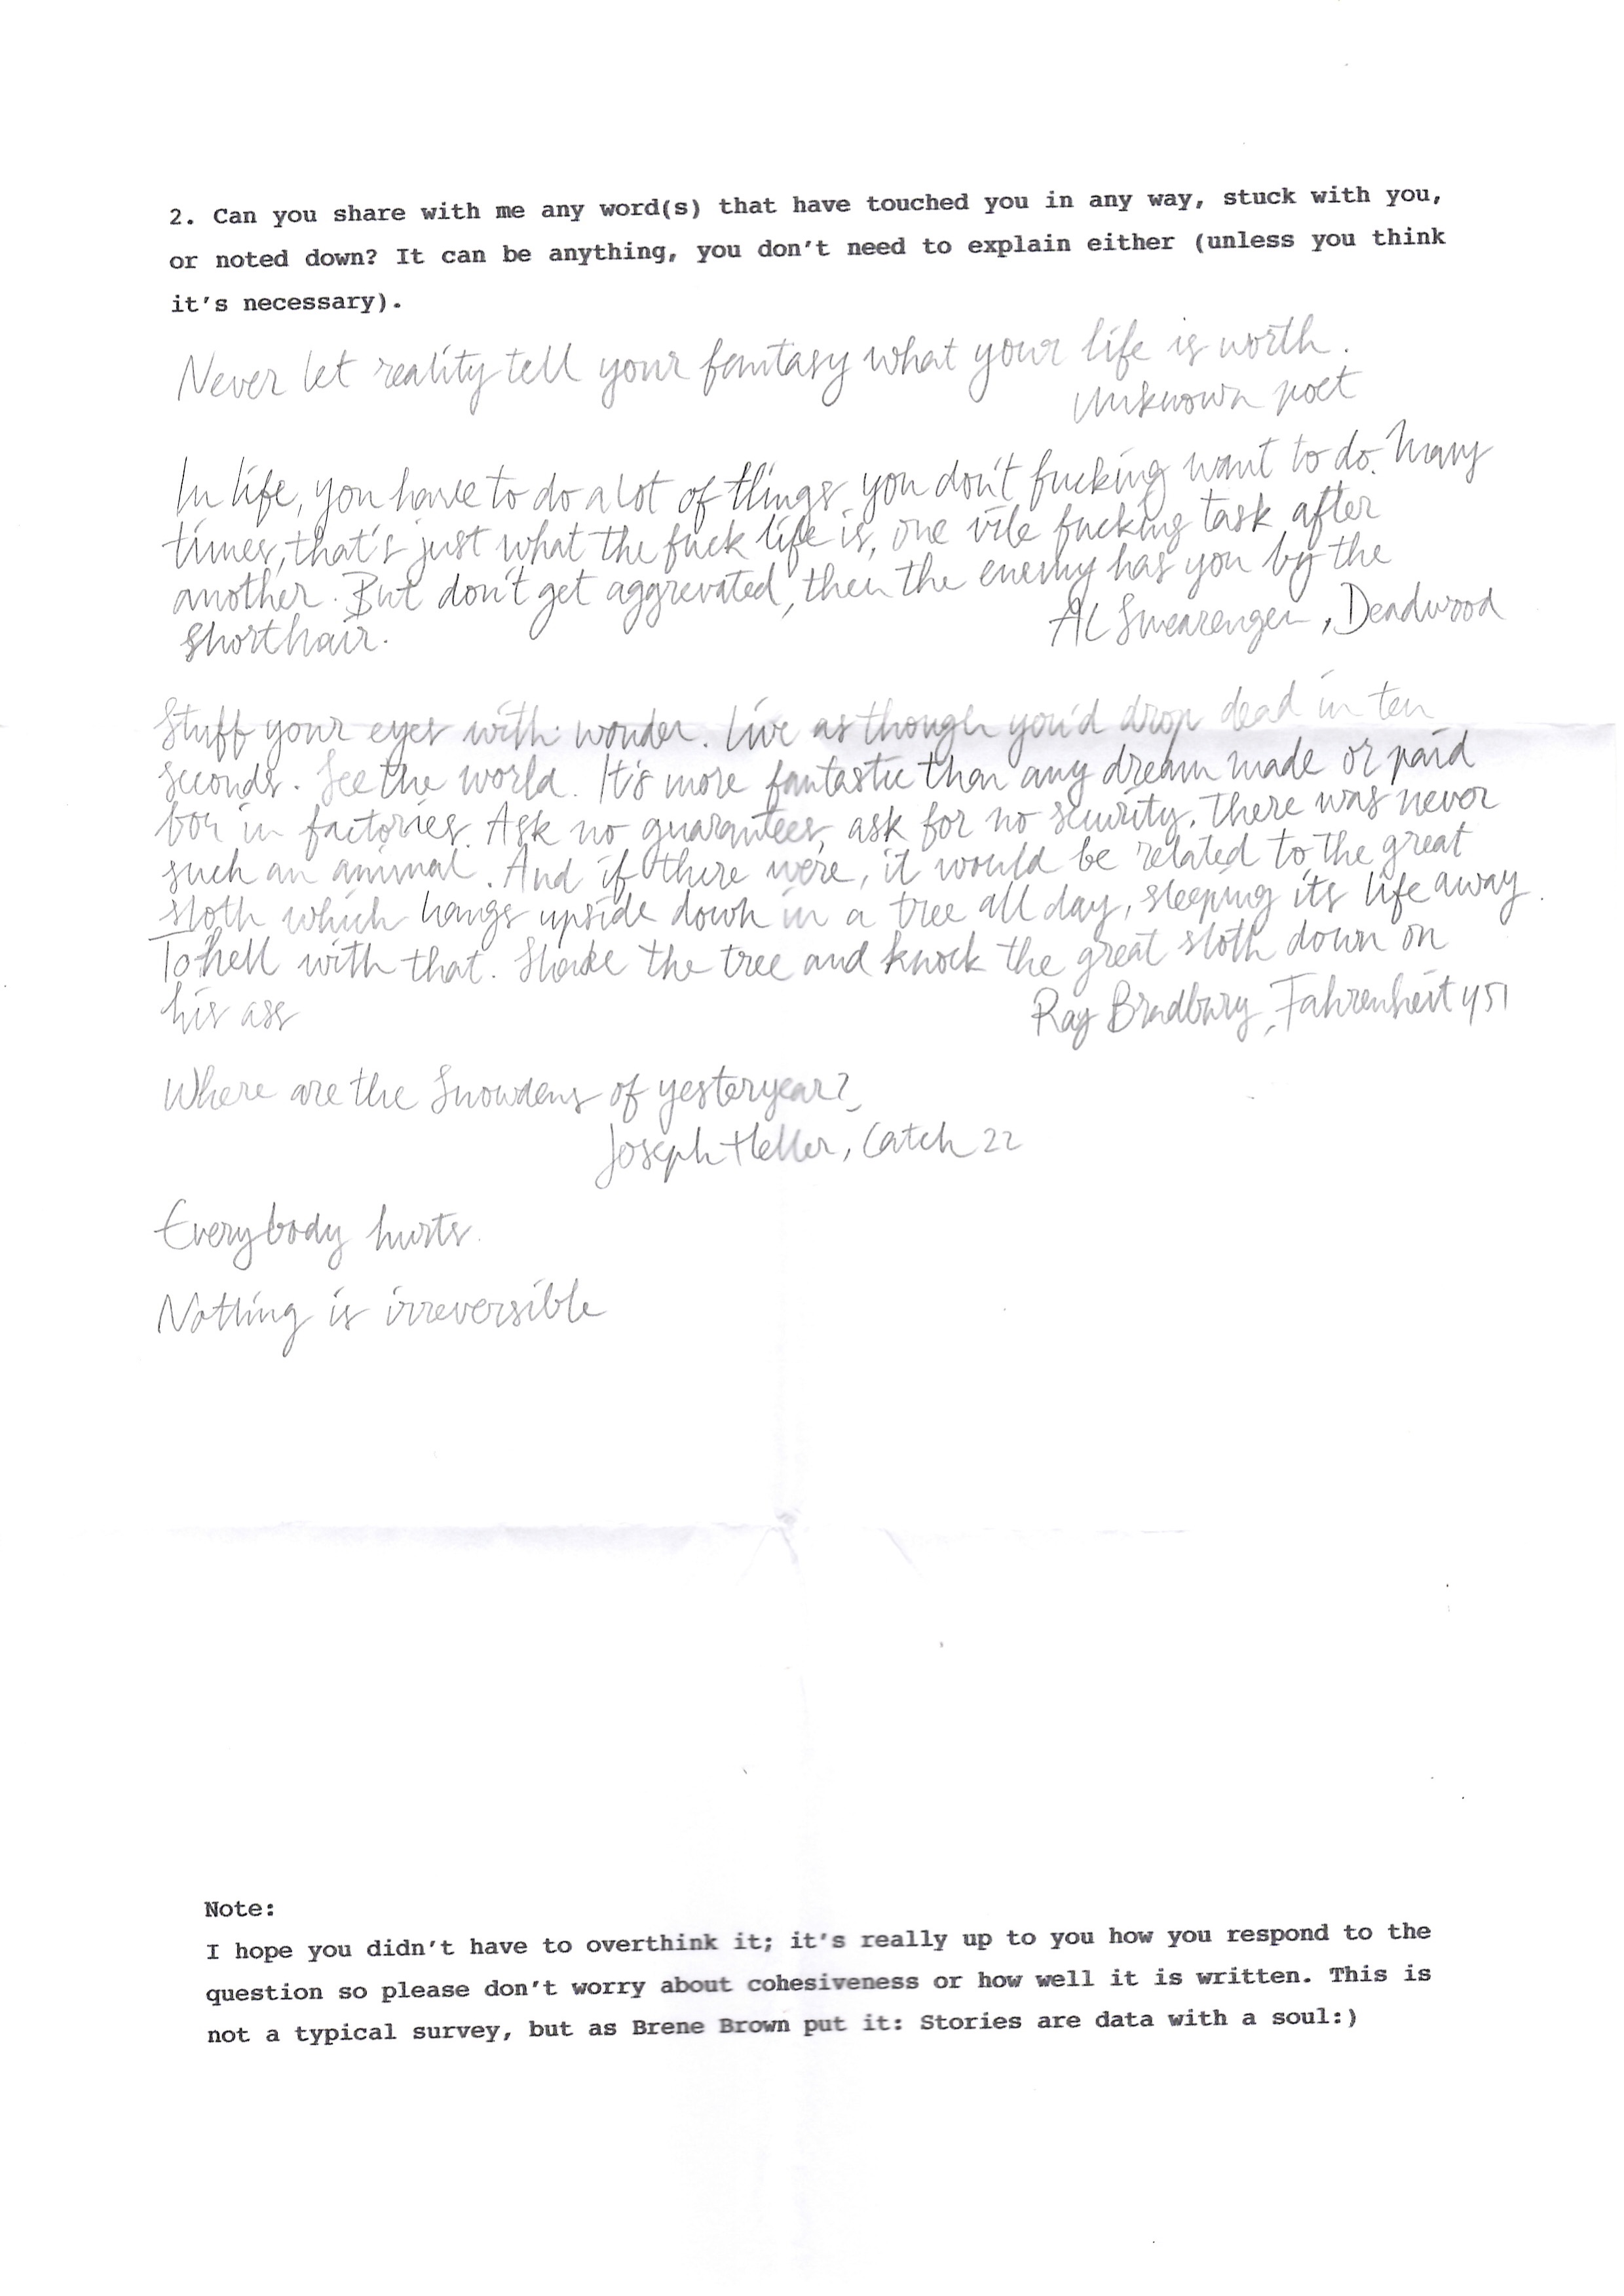 2. Can you share with me any word(s) that have touched you in any way, stuck with you,
or noted down? It can be anything, you don't need to explain either (unless you think
it's necessary).
Never let reality tell your fantasy what your life is worth.
Unknown poet
In life, you have to do a lot of things you don't fucking want to do. Many
times, that's just what the fuck life is, one vile fucking task after
another. But don't get aggrevated, then the enemy has you by the
shorthair.
Al Swearengen, Deadwood
Stuff your eyes with wonder. Live as though you'd drop dead in ten
seconds. See the world. It's more fantastic than any dream made or paid
for in factories. Ask no guarantees, ask for no security. There was never
such an animal. And if there were, it would be related to the great
sloth which hangs upside down in a tree all day, sleeping its life away.
To hell with that. Shake the tree and knock the great sloth down on
his ass
Ray Bradbury, Fahrenheit 451
Where are the Snowdens of yesteryear?
Joseph Heller, Catch 22
Everybody hurts.
Nothing is irreversible
Note:
I hope you didn't have to overthink it; it's really up to you how you respond to the
question so please don't worry about cohesiveness or how well it is written. This is
not a typical survey, but as Brene Brown put it: Stories are data with a soul:)